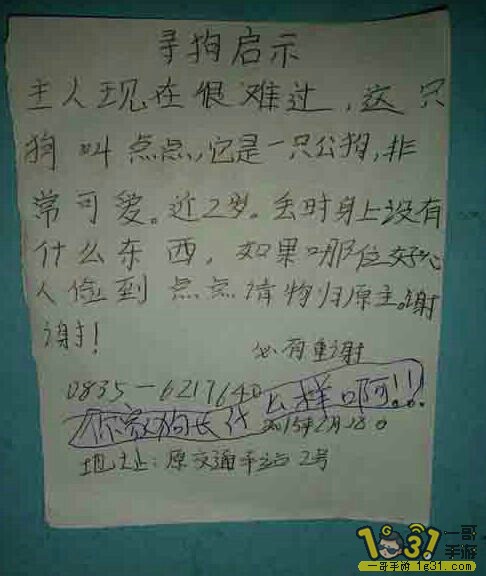 寻狗启示
主人现在很难过，这只
狗叫点点，它是一只公狗，非
常可爱。近2岁。丢时身上没有
什么东西，如果哪位好心
人俭到点点请物归原主。谢
谢！
必有重谢
0835-6217640
你家狗长什么样啊!!!
2015年2月28日
地址：原交通车站2号
1931 一哥手游
一哥手游 1g31.com